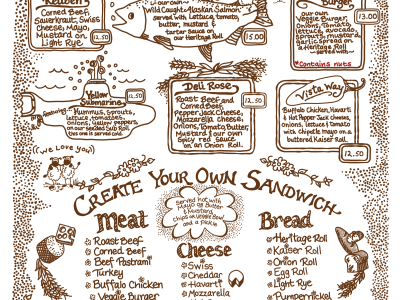 Reuben
Corned Beef,
Sauerkraut, Swiss
Cheese, Mayo,
Mustard on
Light Rye
12.50
our own
Wild Caught Alaskan Salmon,
served with Lettuce, tomato,
butter, mustard &
tarter Sauce on
our Heritage Roll
15.00
Burger
our own
Veggie Burger,
Onions, Tomato
lettuce, avocado,
sprouts, mustard,
garlic spread on
a Heritage Roll
served warm
*Contains nuts
13.00
Yellow
Submarine
12.50
Featuring
Hummus, Sprouts,
lettuce, tomatoes,
onions, yellow peppers,
on our seeded Sub Roll
plus one is served cold
Deli Rose
Roast Beef and
Corned Beef,
Pepper Jack Cheese,
Mozzarella cheese,
Onions, Tomato, Butter,
mustard & our own
Spicy red Sauce
on an Onion Roll.
12.50
Vista Way
Buffalo Chicken, Havarti
& Hot Pepper Jack Cheeses,
onions, lettuce & tomato
with chipotle mayo on a
buttered Kaiser Roll.
12.50
we Love you
Create Your Own Sandwich
Served hot with
Mayo or Butter
& Mustard,
chips or Veggie Bowl
and a pickle
Meat
Roast Beef
Corned Beef
Beef Pastrami
Turkey
Buffalo Chicken
Veggie Burger
Cheese
Swiss
Cheddar
Havarti
Mozzarella
Bread
Heritage Roll
Kaiser Roll
Onion Roll
Egg Roll
Light Rye
Pumpernickel